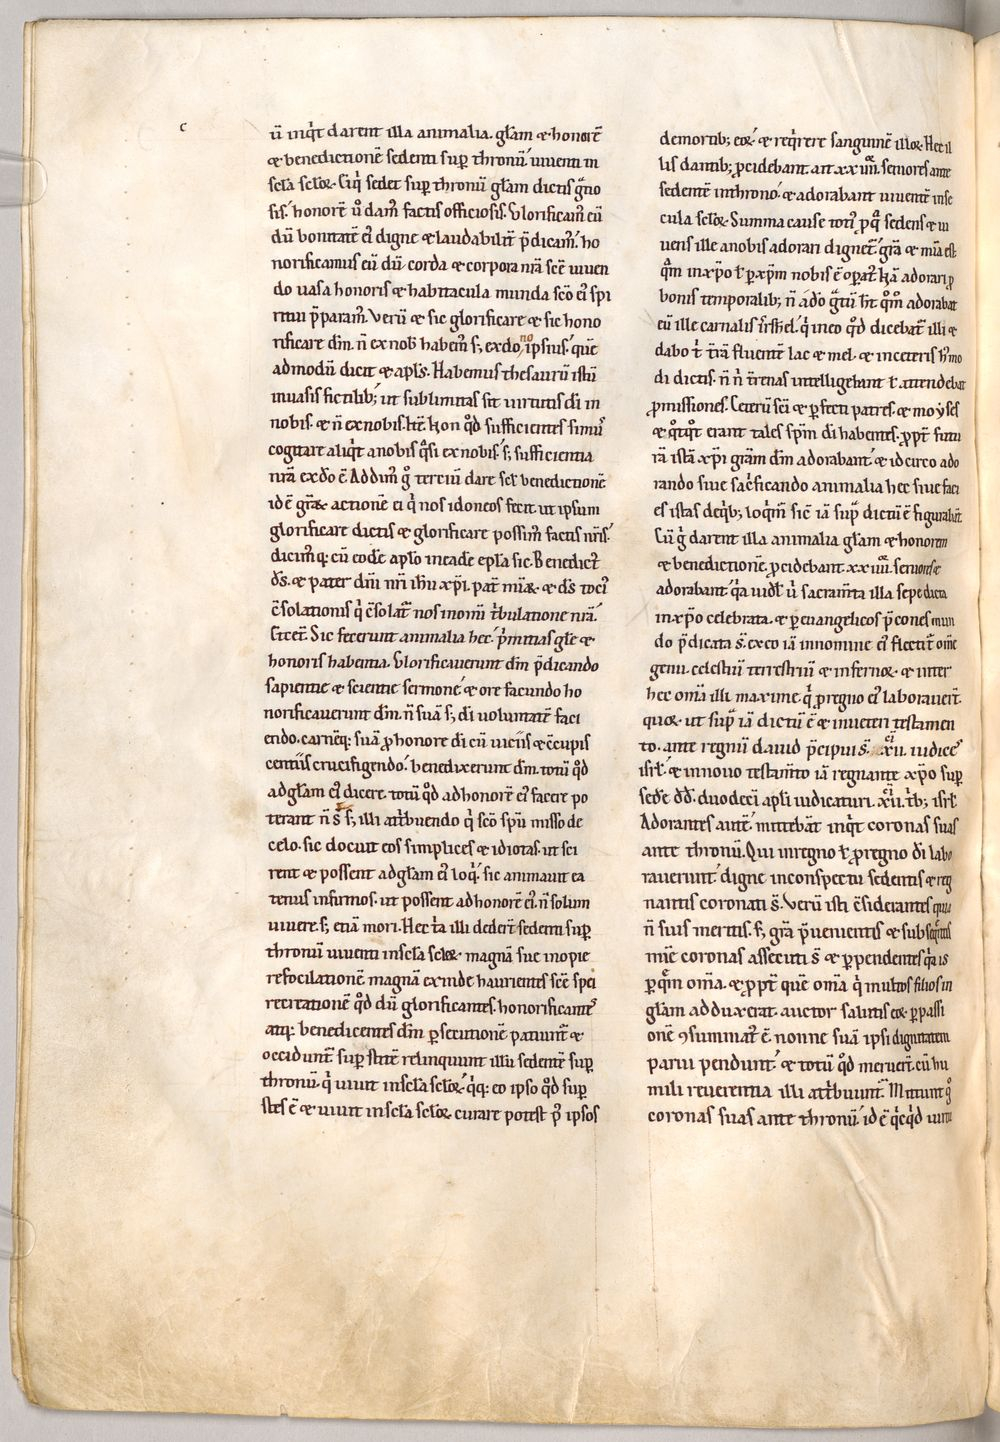 c
ū inq̄t darent illa animalia. gl̄am & honorē
& benedictionē sedenti sup̄ thronū uiuenti in
scl̄a sclōꝝ. Ei q̇ sedet sup̄ thronū gl̄am dictis g̃no
sis. honorē ů dam̄ factis officiosis. Glorificam̄ eū
dū bonitatē ei᷒ digne & laudabilit̄ p̄dicam̄. ho
norificamus eū dū corda & corpora nr̄a scē uiuen
do uasa honoris & habitacula munda scō ei᷒ spi
ritui p̄param̄. Verū & sic glorificare & sic hono
rificare dn̄m. n̄ ex nob̄ habem̄ s; ex dono ipsius. que
admodū dicit & apl̄s. Habemus thesaurū istū
in uasis fictilib; ut sublimitas sit uirtutis di in
nobis. & n̄ ex nobis. Itē Non qd̄ sufficientes simus᷒
cogitare aliq̇t a nobis q̄si ex nobis. s; sufficientia
nr̄a ex dō ē. Addim̄ g̊ terciū dare scl̄ benedictionē
id ē gr̄aꝝ actionē ei q̇ nos idoneos fecit. ut ipsum
glorificare dictis & glorificare possim̄ factis nr̄is.
dicim̄q; cū codē apl̄o in eadē epl̄a sic. Benedict᷒
d̄s. & pater dn̄i nr̄i ih̄u xp̄i. pat̄ mīaꝝ & d̄s toci᷒
c̄solationis q̇ c̄solat̄ nos in omi t̄bulatione nr̄a.
Et cet̄. Sic fecerunt animalia hec. p̄mitias gl̄e &
honoris habentia. Glorificauerunt dn̄m p̄dicando
sapientie & scientie sermonē & ore facundo ho
norificauerunt dn̄m. n̄ suā s; di uoluntatē faci
endo. carnēq; suā ꝓ honore di cū uiciis & c̄cupis
centiis crucifigendo. benedixerunt dn̄m. totū qd̄
ad gl̄am ei᷒ dicere. totū qd̄ ad honorē ei᷒ facere po
terant n̄ s̄ s; illi att̄buendo q̇ scō spū misso de
celo. sic docuit eos simplices & idiotas. ut sci
rent & possent ad gl̄am ei᷒ loq̇. sic animauit ea
tenus infirmos. ut possent ad honorē ei᷒ n̄ solum
uiuere. s; etiā mori. Hec t̄a illi dedert̄ sedenti sup̄
thronū uiuenti in scl̄a sclōꝝ. magnā sue inopie
refocilationē magnā ex inde haurientes scē spei
recreationē qd̄ dū glorificantes. honorificantes᷒
atq; benedicentes dn̄m ꝑsecutionē patiunt̄ &
occidunt̄. sup̄stitē relinquunt illū sedentē sup̄
thronū. q̇ uiuit in scl̄a sclōꝝ. q̇q; eo ipso qd̄ sup̄
stes ē & uiuit in scl̄a sclōꝝ. curare potest p᷒ ipsos
de mortib; eoꝝ & req̇rere sanguinē illoꝝ. Hec il
lis dantib; ꝓcidebant. ait xx iiii. seniores ante
sedentē in throno. & adorabant uiuentē in se
cula sclōꝝ. Summa cause toti᷒ ꝓ q̄ sedens & ui
uens ille a nobis adorari dignet̄. gr̄a & mīa est
q̄m in xp̄o t̄ ꝑ xp̄m nobis ē opat᷒. Nā adorari ꝓ
bonis temporalib; n̄ ado g̃tū h̄t q̊m̊ adorabat
eū ille carnalis isrh̄el. q̇ in eo qd̄ dicebat᷒ illi &
dabo t̄ t̄rā fluentē lac & mel. & in ceteris hᵒmo
di dictis. n̄ n̄ t̄renas intelligebant t̄ attendebat
ꝓmissiones. Ceterū sci & ꝑfecti patres. & moyses
& q̊tq̊t erant tales spm̄ di habentes. ꝓpt̄ futu
rā istā xp̄i gr̄am dn̄m adorabant. & idcirco ado
rando siue sac̄ficando animalia hec siue faci
es istas de q̇b; loq̇m̄ sic̄ iā sup᷒ dictū ē figurabat̄
Cū g̊ darent illa animalia gl̄am & honorem
& benedictionē. ꝓcidebant xx iiii. seniores &
adorabant. q̇a uidl̄ ů sacram̄ta illa sepe dicta
in xp̄o celebrata. & ꝑ euangelicos p̄cones mun
do p̄dicata s̄. ex eo iā in nomine ei᷒ flectit̄ om̄e
genu. celestiū terrestriū & infernoꝝ. & inter
hec om̄a illi maxime. q̇ ꝓ regno ei᷒ laborauert̄.
quoꝝ ut sup᷒ iā dictū ē & in ueteri testamen
to. ante regnū dauid p̄cipui s̄. xii. iudices᷒
isrl̄. & in nouo testam̄to iā regnante xp̄o sup̄
sedē dd̄. duodeci apl̄i iudicaturi. xii. t̄b; isrl̄
Adorantes autē. mittebāt inq̄t coronas suas
ante thronū. Qui in regno t̄ ꝓ regno di labo
rauerunt. digne in conspectu sedentis & reg
nantis coronati s̄. Verū isti c̄siderantes quia
n̄ suis meritis. s; gr̄a p̄uenientis & subseq̄ntis
mīe coronas assecuti s̄. & ꝑpendentes q̇a is
ꝑ q̄m om̄a. & ꝓpt̄ quē om̄a q̇ multos filios in
gl̄am adduxerat. auctor salutis eoꝝ ꝑ passi
onē ꝯsummat᷒ ē. nonne suā ipsi dignitatem
parui pendunt. & totū qd̄ meruert̄. cū hu
mili reuerentia illi att̄buunt̄. Mittunt g̊
coronas suas ante thronū. id ē q̇cq̇d uirtu